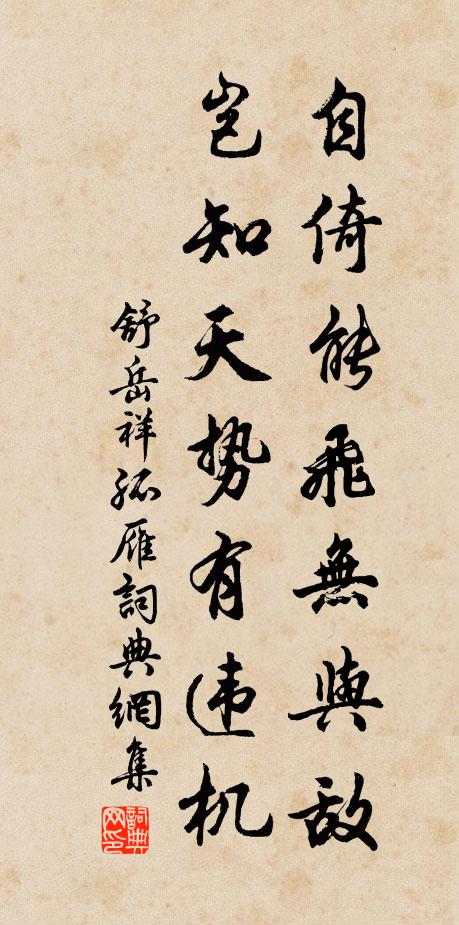 自倚能飛無與敌
岂知天势有违机
舒岳祥孤雁詞典網集
詞典网印